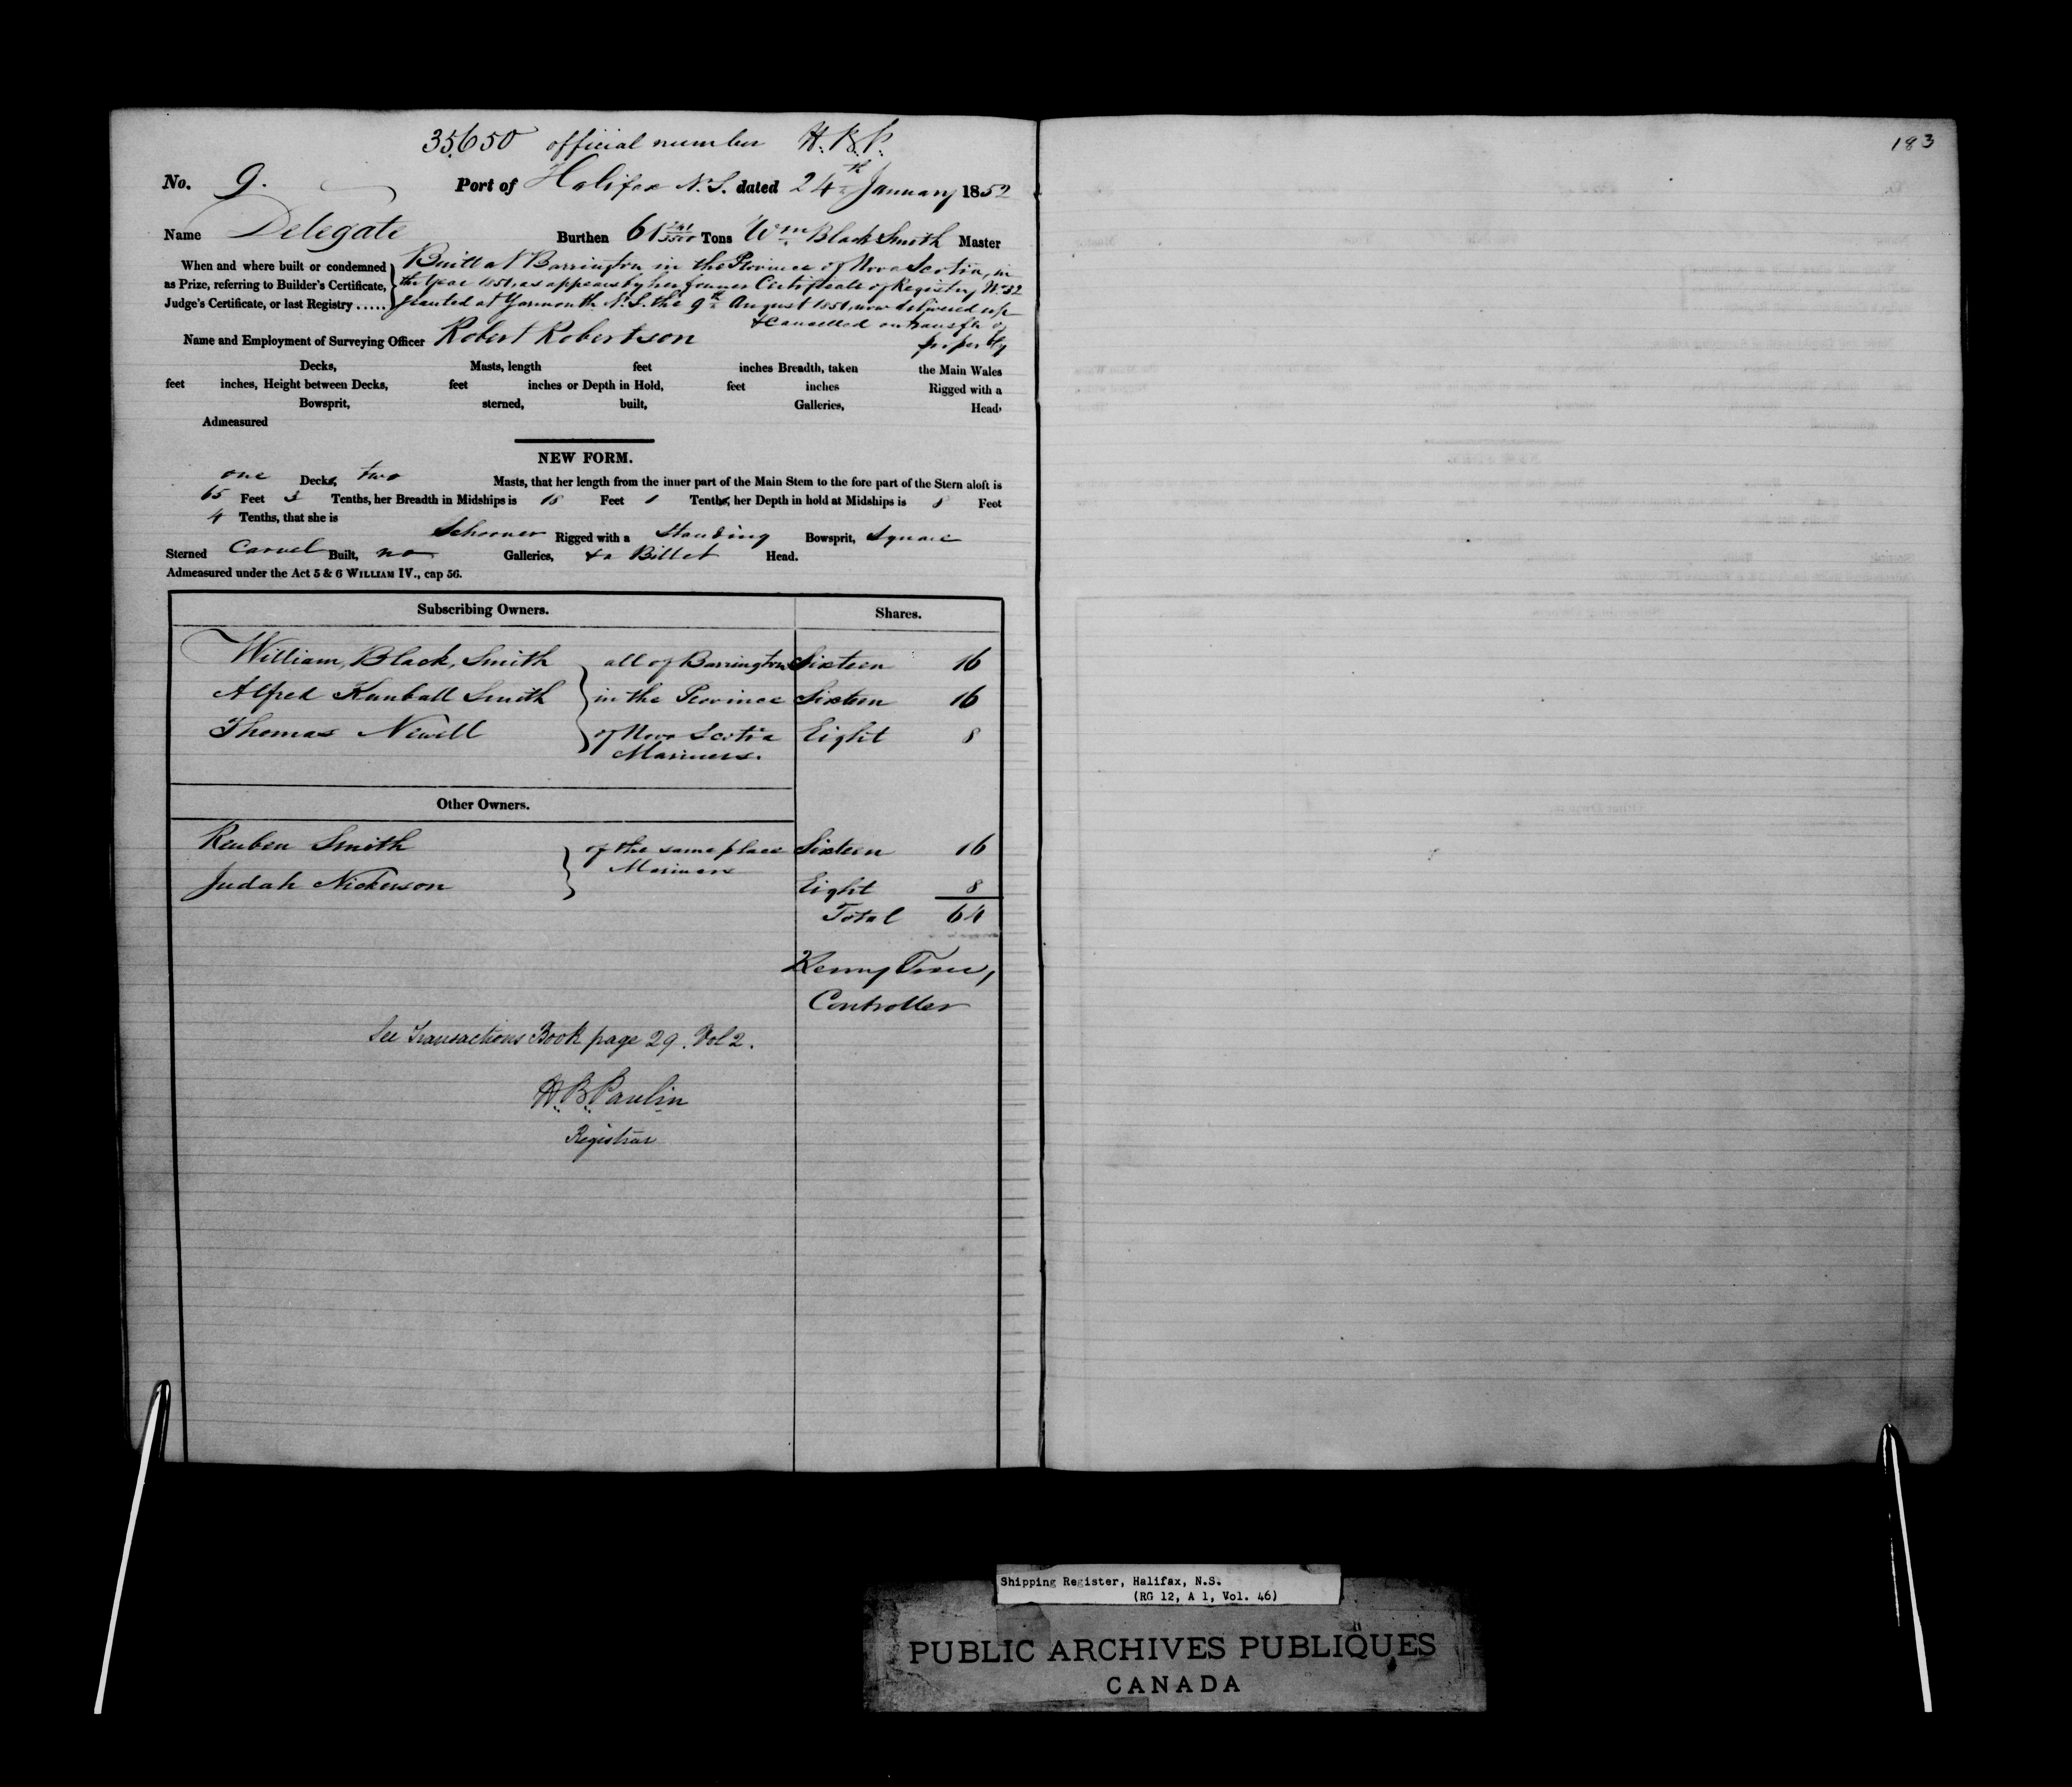 35,650 official number H.B.P.
No. 9. Port of Halifax N.S. dated 24th January 1852
Name Delegate Burthen 61 Tons Wm Black Smith Master
When and where built or condemned as Prize, referring to Builder's Certificate, Judge's Certificate, or last Registry .....
Built at Barrington in the Province of Nova Scotia, in
the Year 1851, as appears by her former Certificate of Registry No. 32
granted at Yarmouth N.S. the 9th August 1851, now delivered up
& Cancelled on transfer of
property
Name and Employment of Surveying Officer Robert Robertson
Decks, Masts, length feet inches Breadth, taken the Main Wales
feet inches, Height between Decks, feet inches or Depth in Hold, feet inches Rigged with a
Bowsprit, sterned, built, Galleries, Head,
Admeasured
NEW FORM.
one Decks, two Masts, that her length from the inner part of the Main Stem to the fore part of the Stern aloft is
65 Feet 3 Tenths, her Breadth in Midships is 18 Feet 1 Tenths, her Depth in hold at Midships is 8 Feet
4 Tenths, that she is
Schooner Rigged with a Standing Bowsprit, Square
Sterned Carvel Built, no Galleries, & a Billet Head.
Admeasured under the Act 5 & 6 WILLIAM IV., cap 56.
Subscribing Owners. Shares.
William, Black, Smith all of Barrington Sixteen 16
Alfred Kimball Smith in the Province Sixteen 16
Thomas Newell of Nova Scotia Eight 8
Mariners.
Other Owners.
Reuben Smith of the same place Sixteen 16
Mariners
Judah Nickerson Eight 8
Total 64
Controller
See Transactions Book page 29. Vol 2.
H.B. Paulin
Registrar
183
Shipping Register, Halifax, N.S.
(RG 12, A 1, Vol. 46)
PUBLIC ARCHIVES PUBLIQUES
CANADA